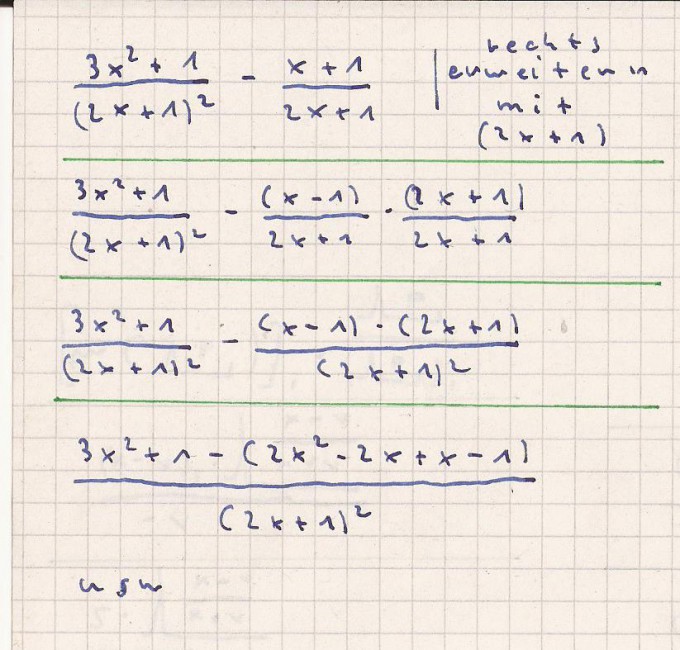 3x² + 1 / (2x + 1)² - x + 1 / 2x + 1 | rechts
erweitern
mit
(2x + 1)
3x² + 1 / (2x + 1)² - (x - 1) / 2x + 1 · (2x + 1) / 2x + 1
3x² + 1 / (2x + 1)² - (x - 1) · (2x + 1) / (2x + 1)²
3x² + 1 - (2x² - 2x + x - 1) / (2x + 1)²
usw